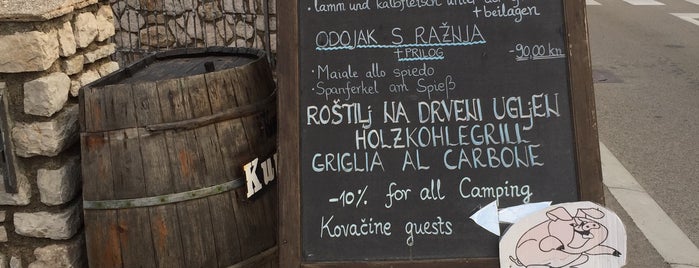 lamm und kalbfleisch unter der
+beilagen
ODOJAK S RAŽNJA
+PRILOG
-90,00 kn
• Maiale allo spiedo
• Spanferkel am Spieß
ROŠTILj NA DRVENI UGLjEN
HOLZKOHLEGRILL
GRIGLIA AL CARBONE
-10% for all Camping
Kovačine guests